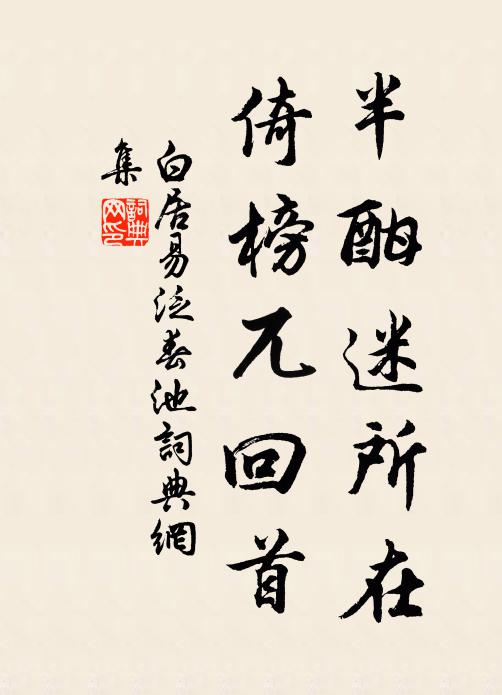 半酣迷所在
倚榜兀回首
白居易泛春池詞典網
集
詞典网印